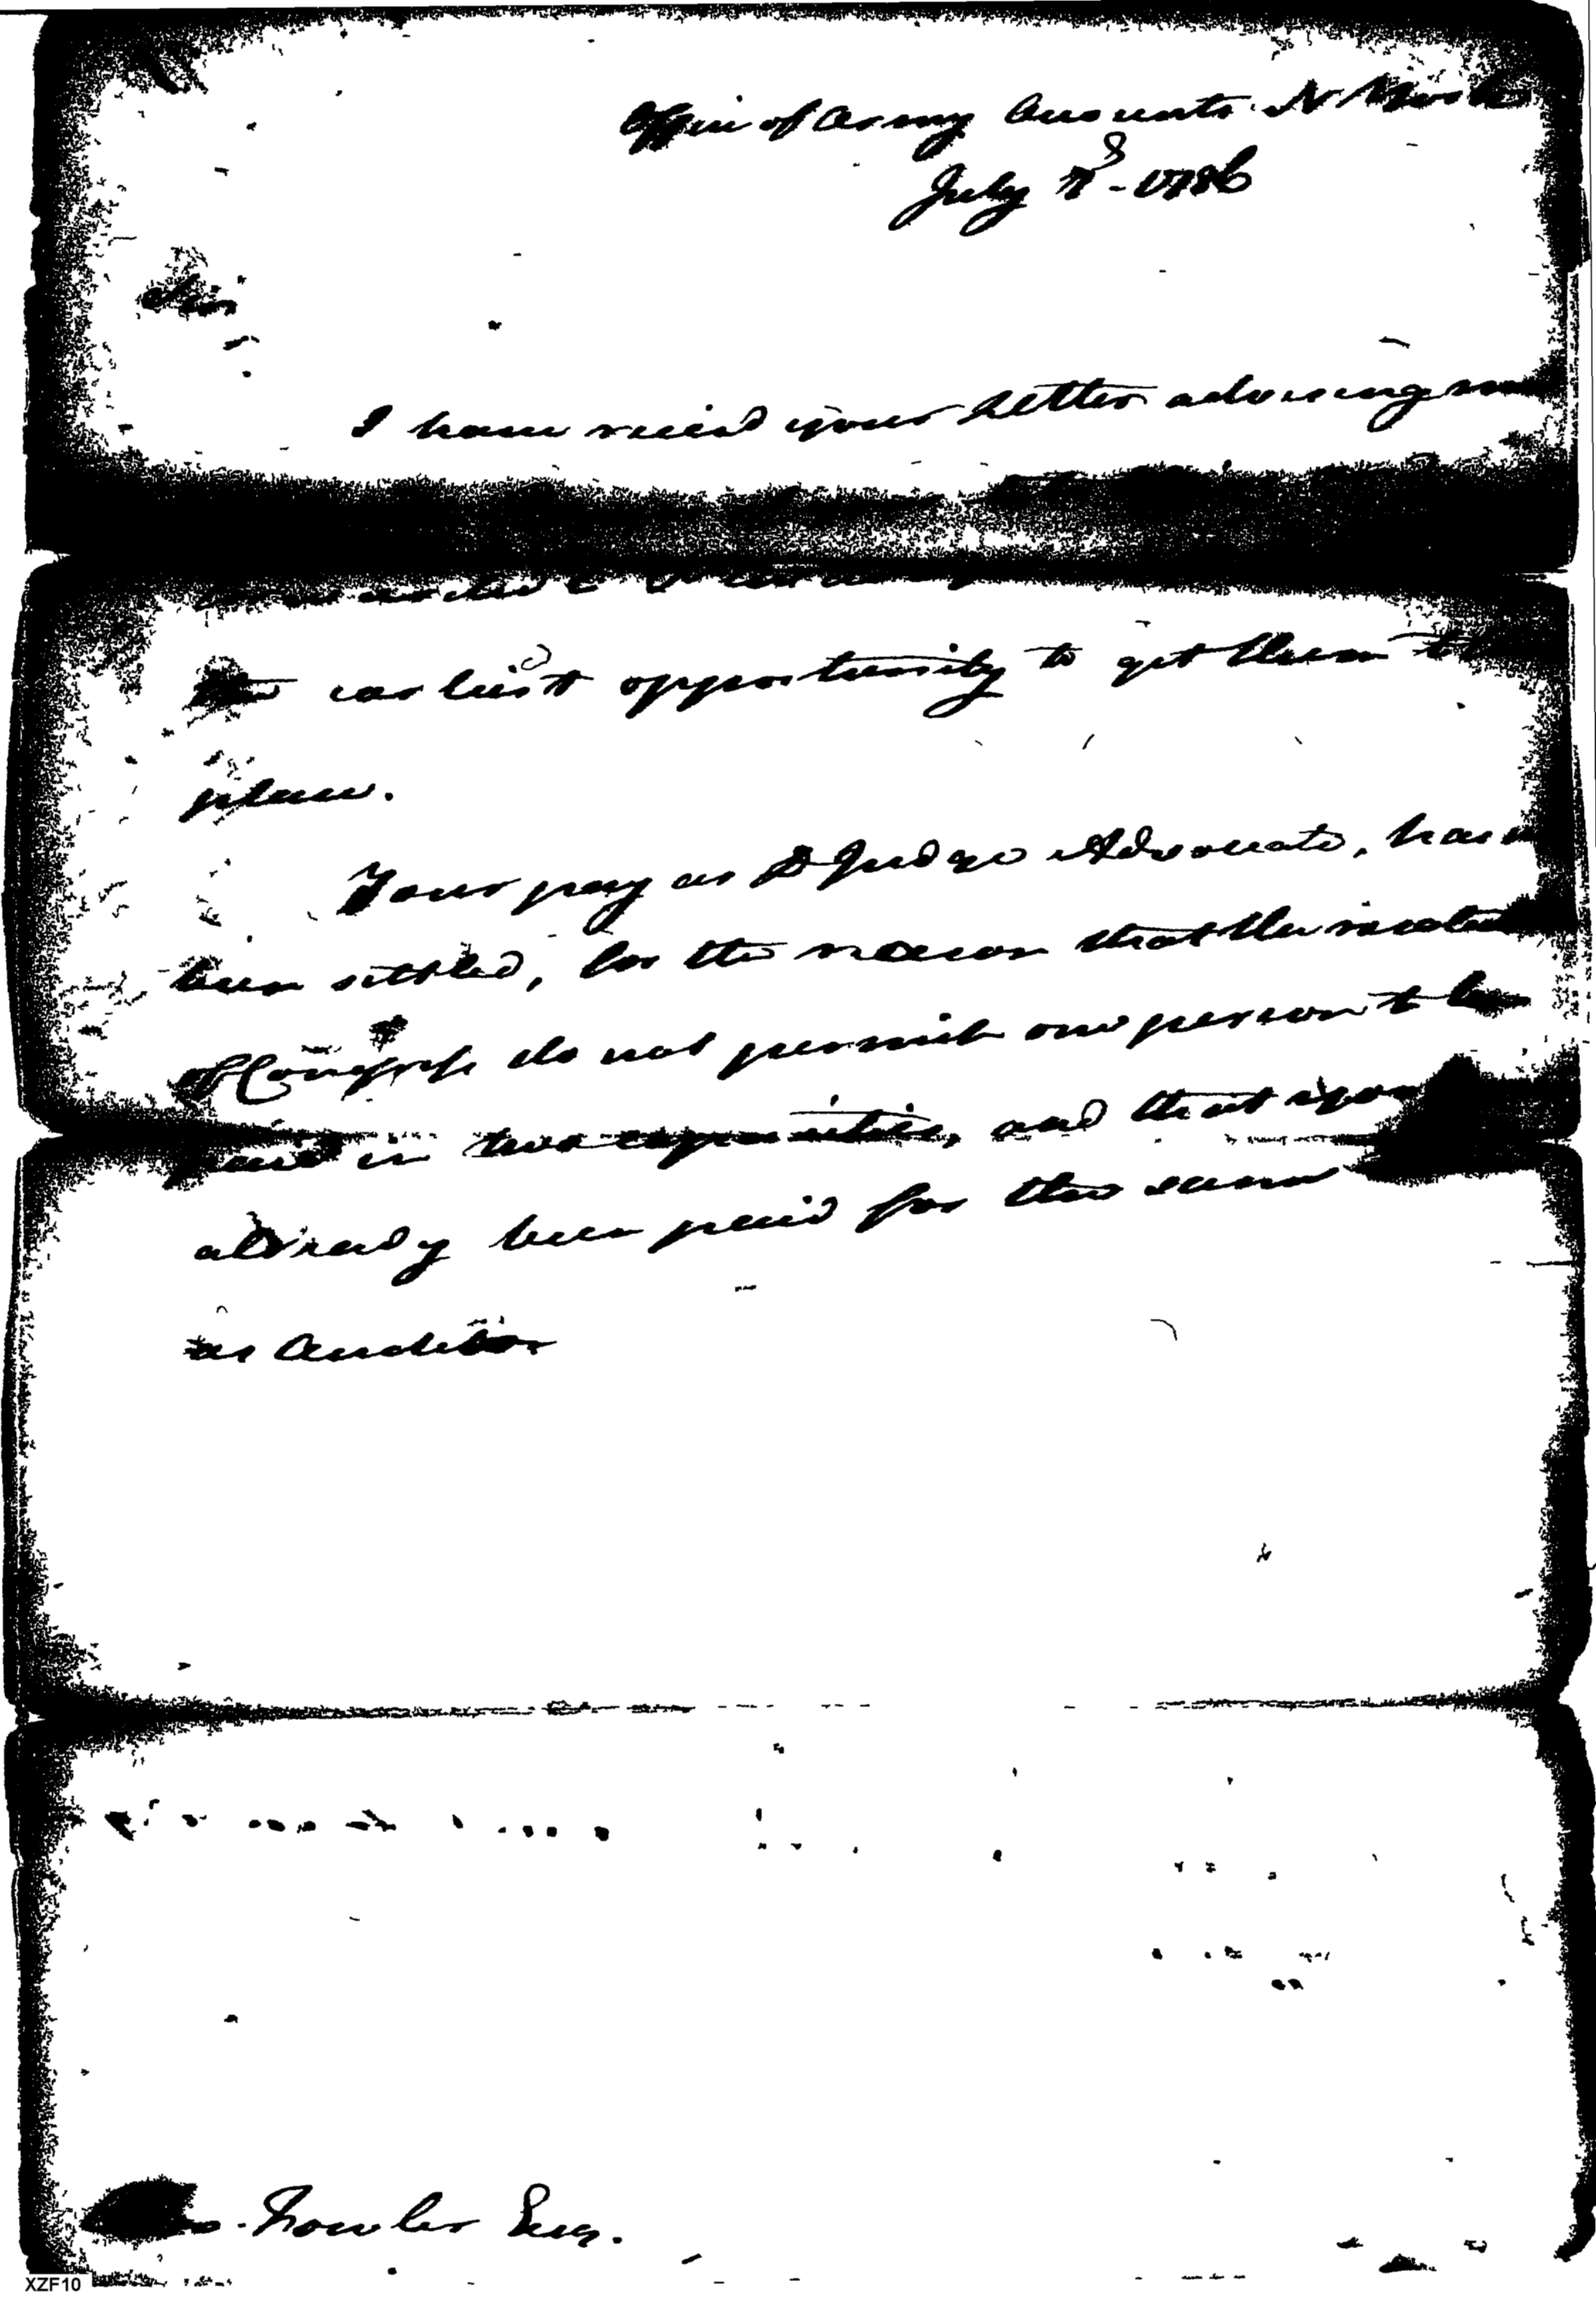 Office of Army Accounts N York
July 8 - 1786
Sir
I have recied your Letter advising me
the earliest opportunity to get them to
place.
Your pay as D Judge Advocate, has
been settled, for the reason that the
of Congress do not permit one person to be
paid in two capacities, and that you
already been paid for the same
as Auditor
Fowler Esqr.
XZF10